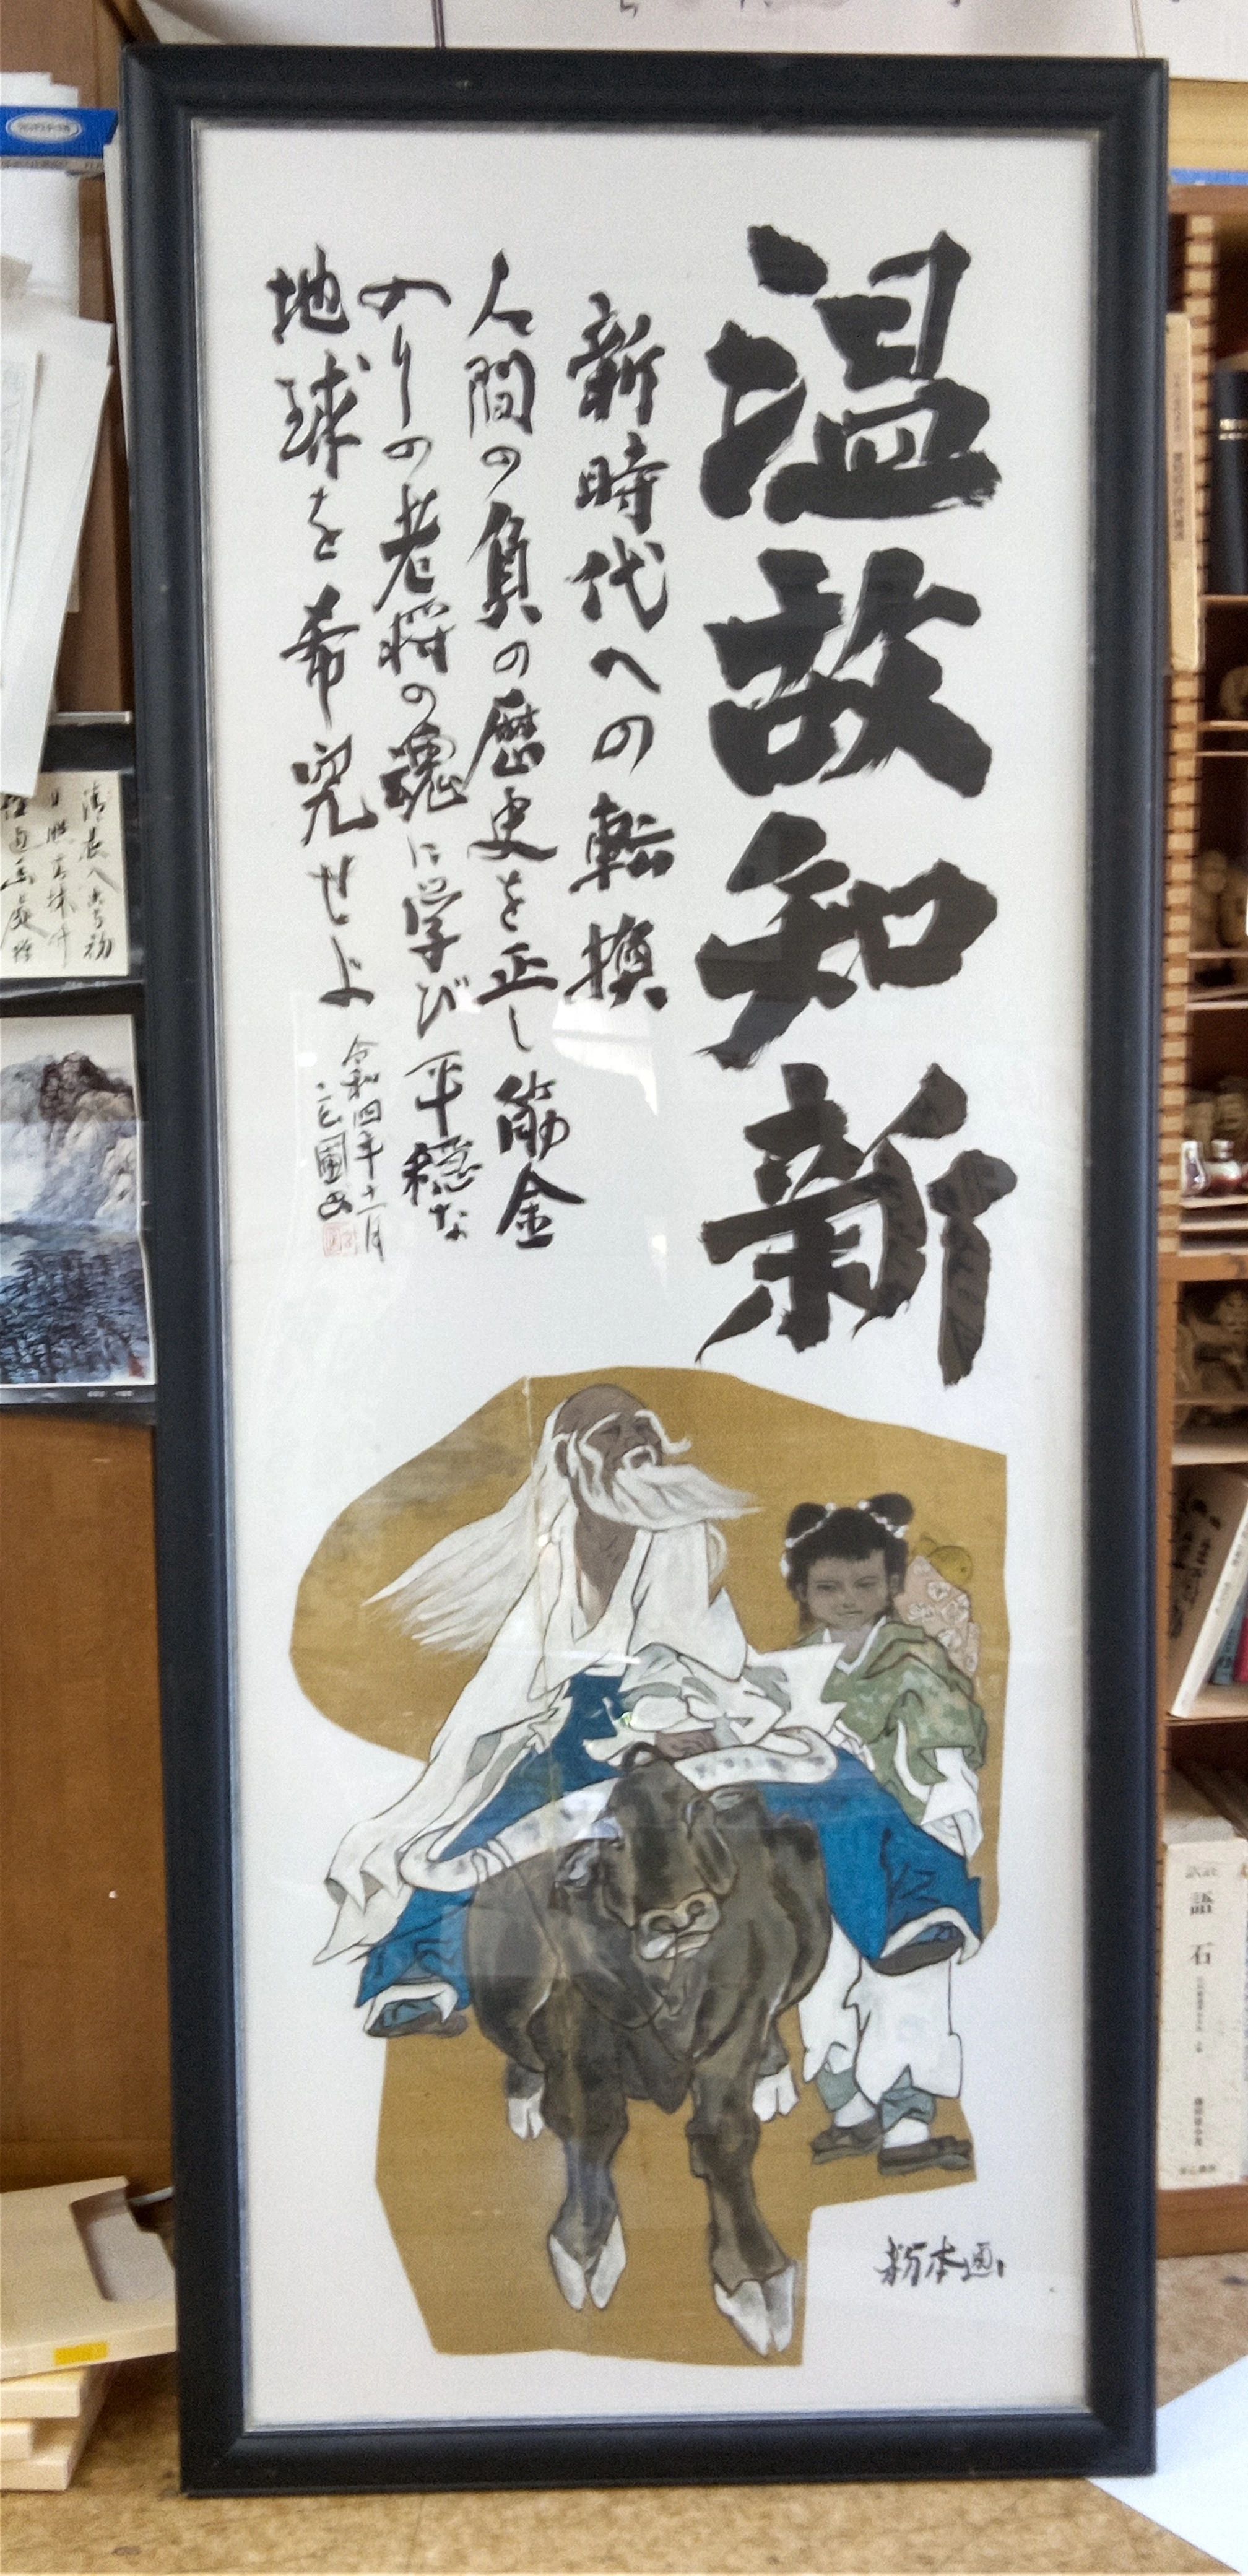 温故知新
新時代への転換
人間の負の歴史を正し筋金
入りの老将の魂に学び平穏な
地球を希究せよ
令和四年十二月
粉本画
語石